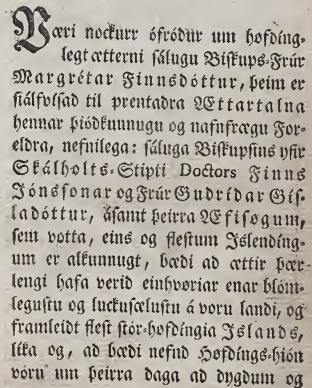 Væri nockurr ófróður um høfðing-
legt ætterni sálugu Biſkups-Frúr
Margrétar Finnsdóttur, þeim er
ſiálfviſað til prentaðra Ættartalna
hennar þióðkunnugu og nafnfrægu For-
eldra, nefnilega: ſáluga Biſkupſins yfir
Skálholts-Stipti Doctors Finns
Jónsſonar og Frúr Guðríðar Gíſ-
ladóttur, áſamt þeirra Æfiſøgum,
ſem votta, eins og fleſtum Islendíng-
um er alkunnugt, bæði að ættir þær
lengi hafa verið einhvøriar enar blóm-
leguſtu og luckuſæluſtu á voru landi, og
framleidt fleſt ſtór-høfðingia Islands,
líka og, að bæði nefnd Høfdíngs-hión
vóru um þeirra daga að dygðum og